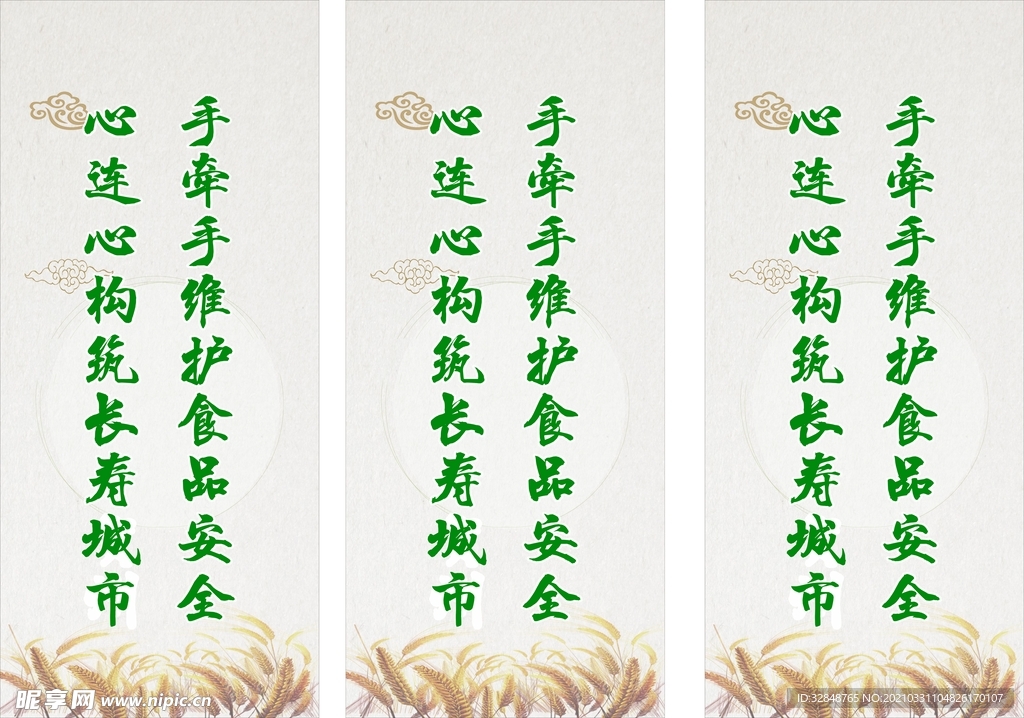 手牵手维护食品安全
心连心构筑长寿城市
手牵手维护食品安全
心连心构筑长寿城市
手牵手维护食品安全
心连心构筑长寿城市
昵享网 www.nipic.cn
ID:32848765 NO:20210331104826170107